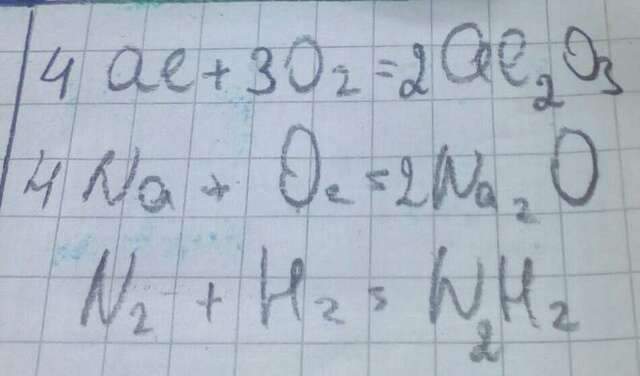 4 Al + 3O₂ = 2Al₂O₃
4 Na + O₂ = 2Na₂O
N₂ + H₂ = N₂H₂